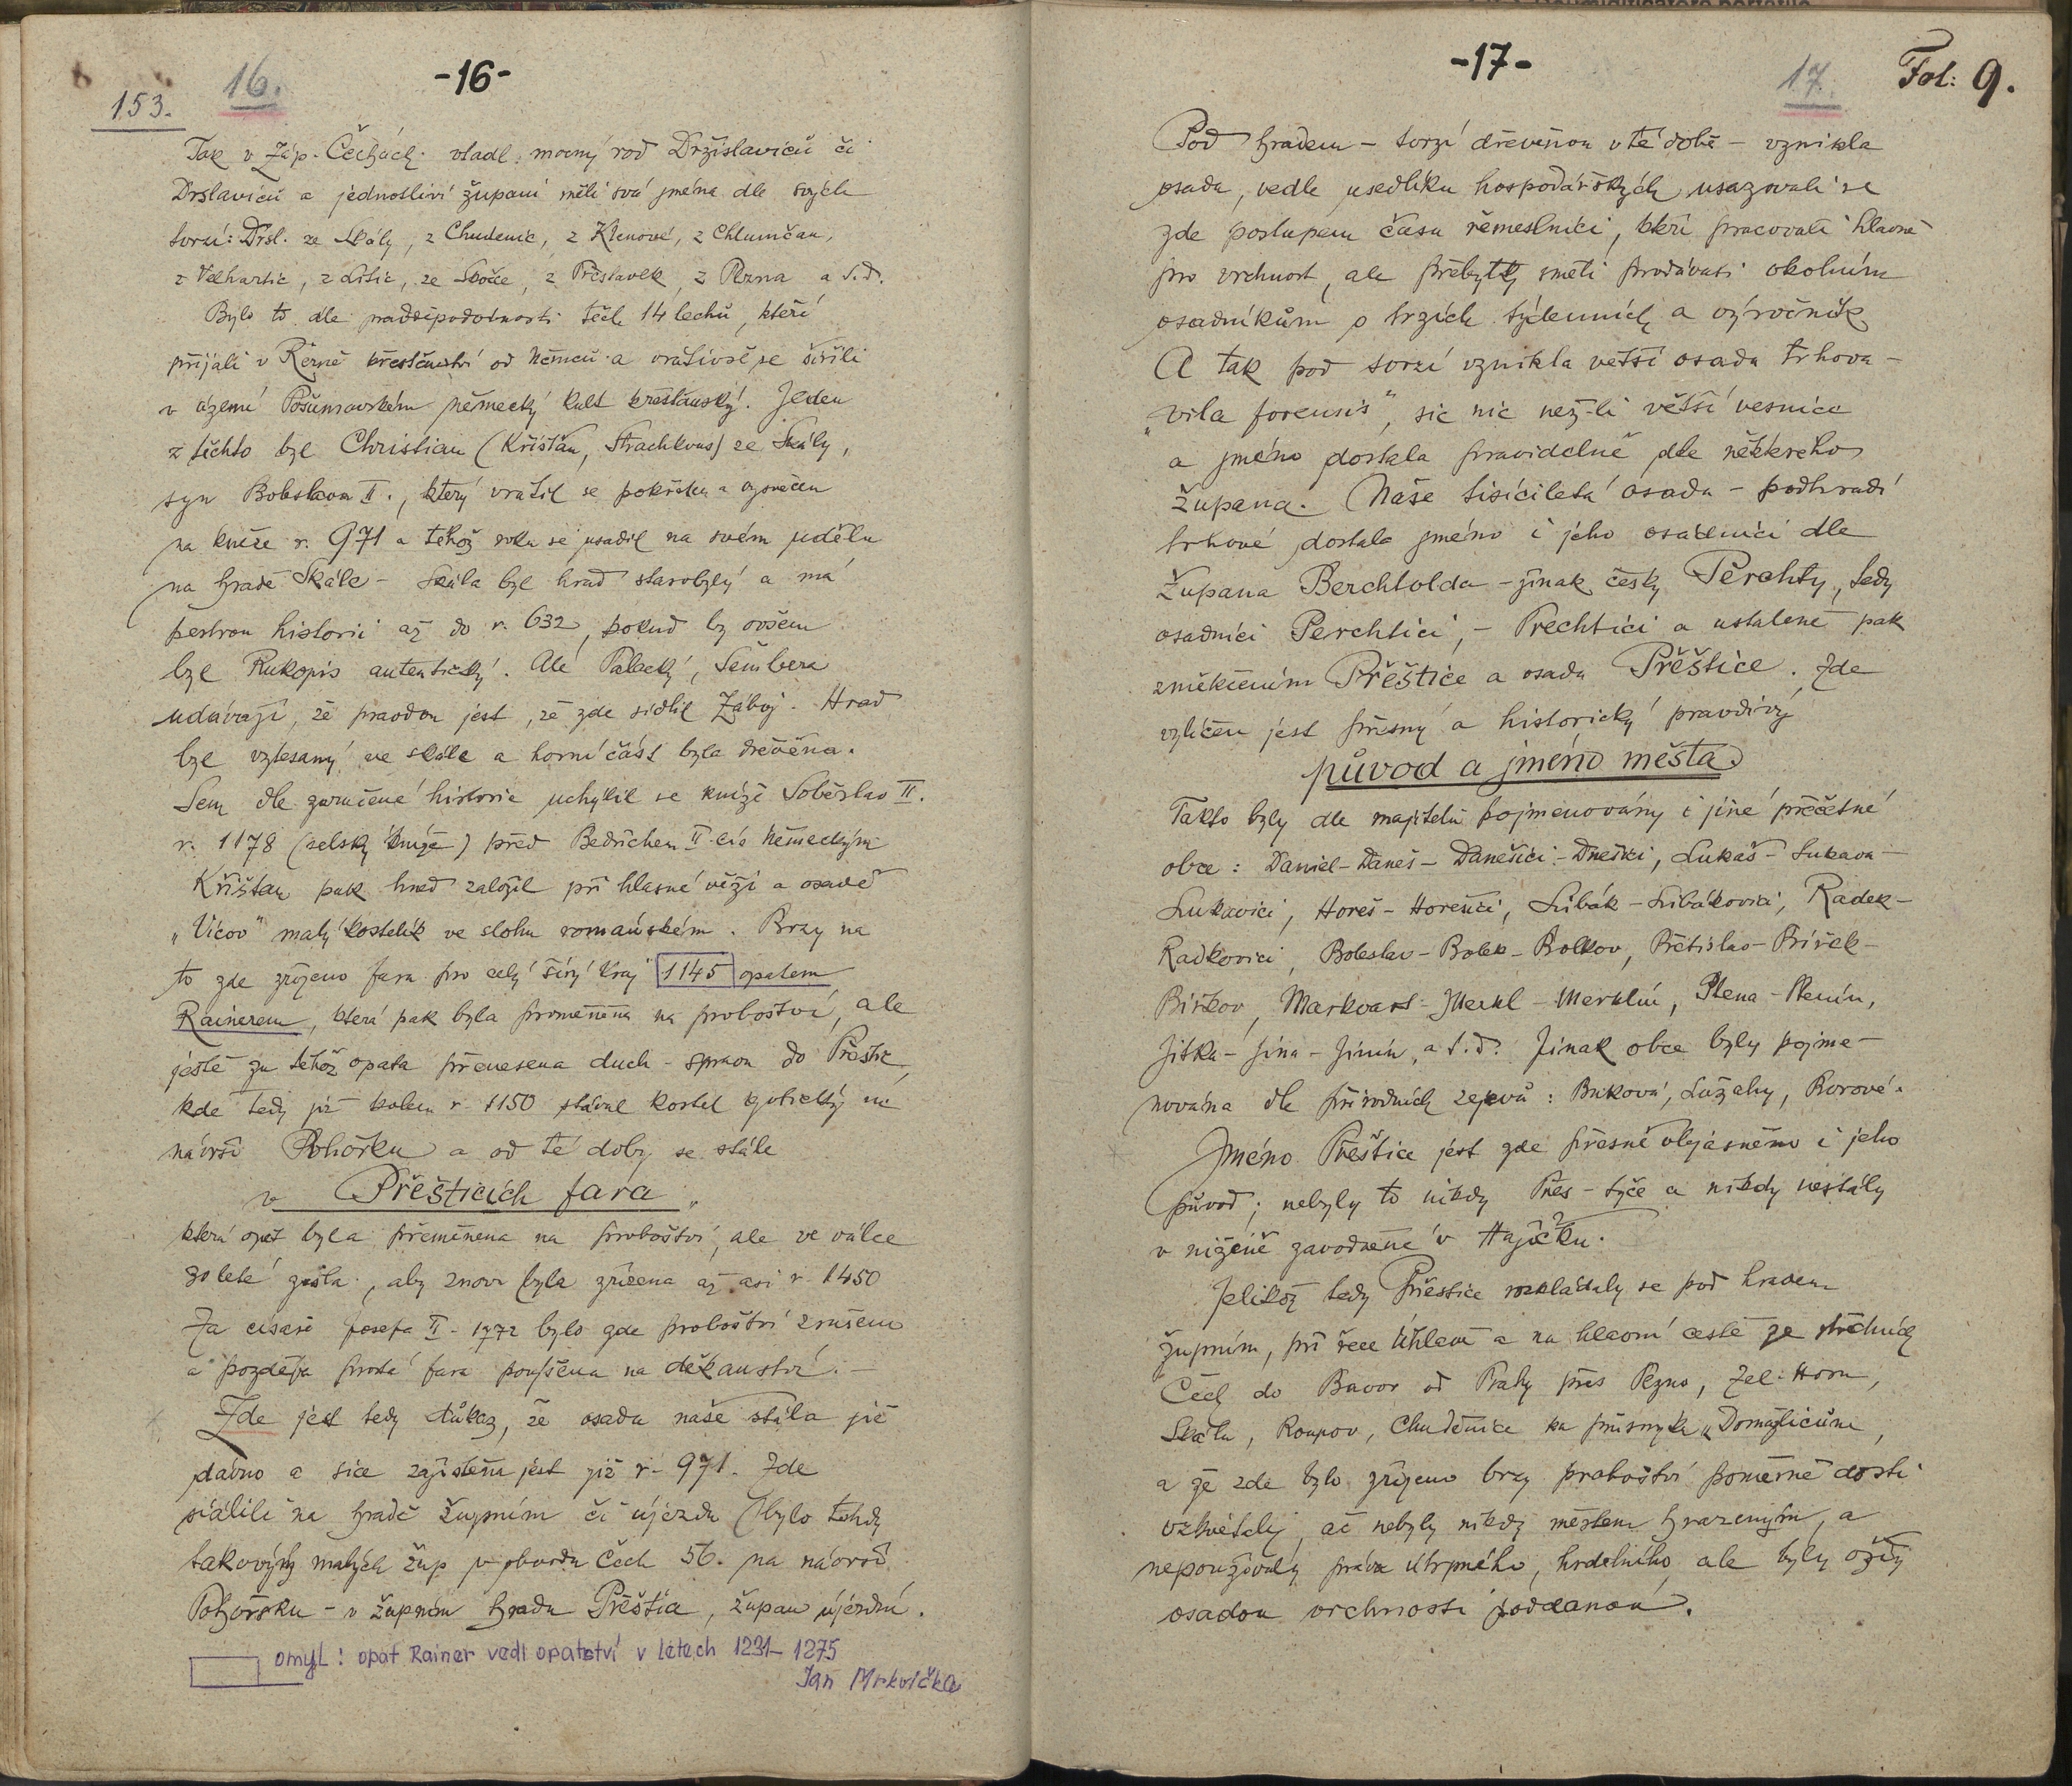 153.
16.
-16-
Tak v Záp. Čechách vládl mocný rod Držislaviců či
Drslaviců a jednotliví župani měli svá jména dle svých
tvrzí: Drsl. ze Skály, z Chudenic, z Klenové, z Chlumčan,
z Velhartic, z Litic, ze Skoče, z Přestavlk, z Plzna a t.d.
Bylo to dle pravděpodobnosti těch 14 lechů, kteří
přijali v Řezně křesťanství od Němců a vrátivše se šířili
v území Pošumavském německý kult křesťanský. Jeden
z těchto byl Christian (Křišťan, Strachkvas) ze Skály,
syn Boleslava II., který vrátil se pokřtěn a vysvěcen
na kněze r. 971 a téhož roku se usadil na svém údělu
na hradě Skále - Skála byl hrad starobylý a má
pestrou historii až do r. 632, pokud by ovšem
byl Rukopis autentický. Ale Palacký, Šembera
udávají, že pravdou jest, že zde sídlil Záboj. Hrad
byl vytesaný ve skále a horní část byla dřevěna.
Sem dle zaručené historie uchýlil se kníže Soběslav II.
r. 1178 (selský kníže) před Bedřichem II. cís Německým
Křišťan pak hned založil při hlasné věži a osadě
„Vícov" malý kostelík ve slohu románském. Brzy na
to zde zřízena fara pro celý širý kraj 1145 opatem
Rainerem, která pak byla proměněna na proboštví, ale
ještě za téhož opata přenesena duch. správa do Přeštic,
kde tedy již kolem r. 1150 stával kostel gotický na
návrší Pohořku a od té doby se stále
v Přešticích fara,
která opět byla přeměněna na proboštví, ale ve válce
30 leté zašla, aby znova byla zřízena až asi r. 1450
Za císaře Josefa II - 1772 bylo zde proboštví zrušeno
a později prostá fara povýšena na děkanství. -
Zde jest tedy důkaz, že osada naše stála již
dávno a sice zajištěna jest již r. 971. Zde
sídlili na hradě župním či újezdu (bylo tehdy
takových malých žup v obvodu Čech 56. na návrší
Pohořsku - v župním hradu Přeštia, župan újezdní.
omyl: opat Rainer vedl opatství v letech 1231-1275
Jan Mrkvička
-17-
17.
Fol: 9.
Pod hradem - tvrzí dřevěnou v té době - vznikla
osada, vedle usedlíků hospodářských usazovali se
zde postupem času řemeslníci, kteří pracovali hlavně
pro vrchnost, ale přebytky směli prodávati okolním
osadníkům o trzích týdenních a výročních
A tak pod tvrzí vznikla větší osada trhová -
„vila forensis", sic nic než-li větší vesnice
a jméno dostala pravidelně dle některého
župana. Naše tisíciletá osada - podhradí
trhové dostala jméno i jeho osadníci dle
župana Berchtolda - jinak česky Perchty, tedy
osadníci Perchtici, - Prechtici a ustáleně pak
změkčením Přěštice a osada Přěštice. Zde
vylíčen jest přesný a historický pravdivý
původ a jméno města.
Takto byly dle majitelů pojmenovány i jiné přečetné
obce: Daniel - Daneš - Danešici - Dnešici, Lukáš - Lukava -
Lukavici, Horeš - Horešici, Libák - Libákovici, Radek -
Radkovici, Boleslav - Bolek - Bolkov, Břetislav - Biřek -
Biřkov, Markvart - Merkl - Merklín, Plena - Plenín,
Jitka - Jína - Jinín, a t.d. Jinak obce byly pojme-
nována dle přírodních zjevů: Buková, Lužaky, Borové.
Jméno Přeštice jest zde přesně objasněno i jeho
původ; nebyly to nikdy Přes - tyče a nikdy nestály
v nížině zavodněné v Hájíčku.
Jelikož tedy Přeštice rozkládaly se pod hradem
župním, při řece Úhlavě a na hlavní cestě ze středních
Čech do Bavor od Prahy přes Plzno, Zel. Horu,
Skálu, Roupov, Chudenice ku průsmyku „Domažlicům,
a že zde bylo zřízeno brzy proboštví poměrně dosti
vzkvétaly, ač nebyly nikdy městem hrazeným, a
nepoužívaly práva útrpného, hrdelního, ale byly vždy
osadou vrchnosti poddanou.